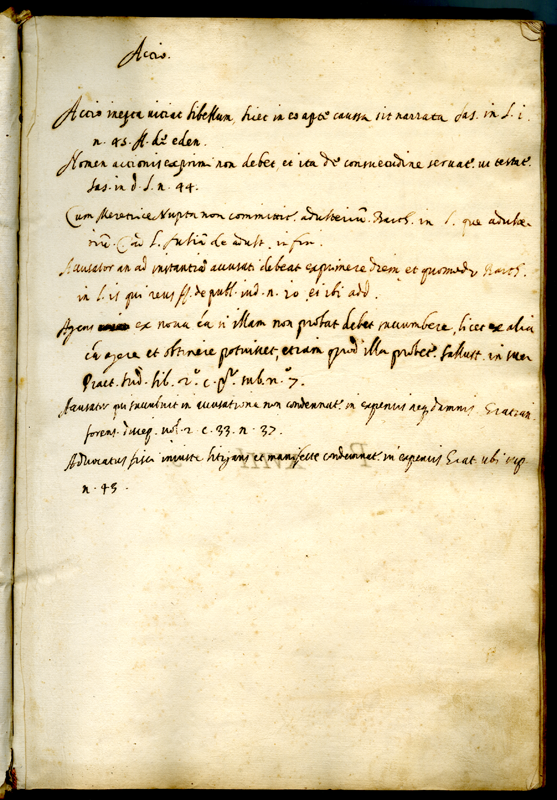 Actio.
Actio inepta vitiat libellum, licet in eo apte caussa sit narrata Jas. in l. 1.
n. 45. ff. de eden.
Nomen actionis exprimi non debet, et ita de consuetudine servat. ut testat.
Jas. in d. l. n. 44.
Cum Meretrice Nupta non committit. adulteriũ. Bart. in l. que adulte-
riũ. C. ad l. Juliã de adult. in fin.
Accusator an ad instantiã accusati debeat exprimere diem, et quomodo Bart.
in l. is qui reus ff. de publ. iud. n. 10. et ibi add.
Agens ex nova cã si illam non probat debet succumbere, licet ex alia
cã agere et obtinere potuisset, etiam quod illa probet.
Pract. Jud. lib. 2º. c. pº. sub. n.º 7.
Accusator qui succubuit in accusatione non condemnat. in expensis neq. damnis.
forens. c. 33. n. 37.
Advocatus fisci iniuste litigans et manifeste condemnat. in expensis ubi sup.
n. 43.